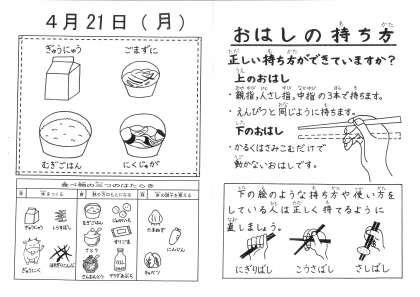 4月21日(月)
ぎゅうにゅう
ごまずに
むぎごはん
にくじゃが
食べ物の三つのはたらき
ぎゅうにゅう
ぎゅうにく
むぎごはん
さとう
すりごま
たまねぎ
にんじん
キャベツ
おはしの持ち方
正しい持ち方ができていますか?
上のおはし
・親指,人さし指,中指の3本で持ちます。
・えんぴつと同じように持ちます。
下のおはし
・かるくはさみこむだけで
動かないおはしです。
下の絵のような持ち方や使い方を
している人は正しく持てるように
直しましょう。
にぎりばし
こうさばし
さしばし